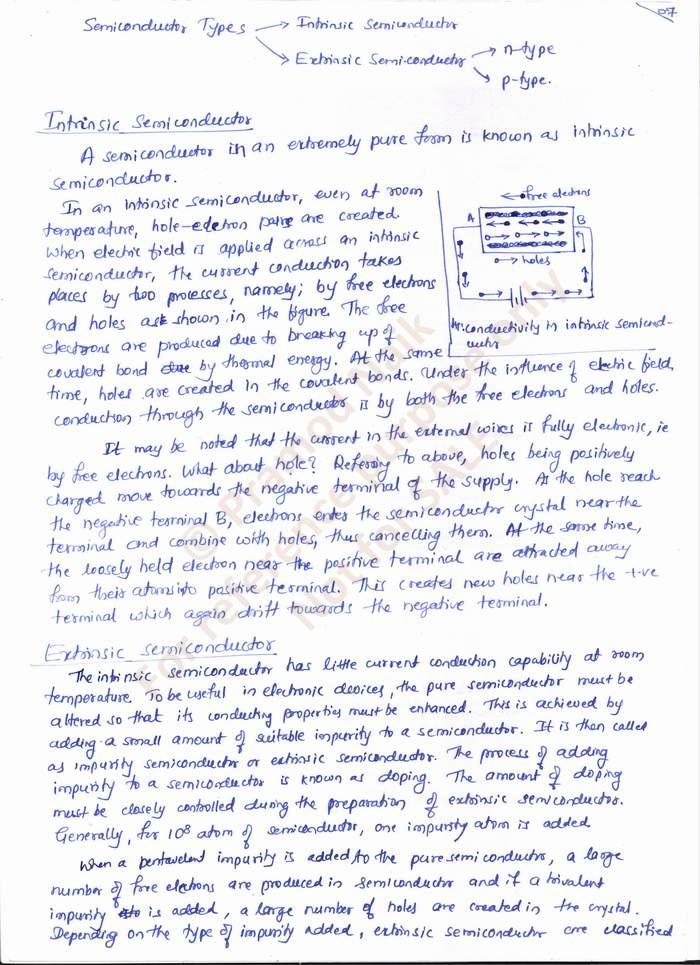 07
Semiconductor Types → Intrinsic Semiconductor
→ Extrinsic Semiconductor → n-type
→ p-type.
Intrinsic Semiconductor
A semiconductor in an extremely pure form is known as intrinsic
semiconductor.
In an intrinsic semiconductor, even at room
temperature, hole-electron pairs are created.
When electric field is applied across an intrinsic
semiconductor, the current conduction takes
places by two processes, namely; by free electrons
and holes as shown in the figure. The free
electrons are produced due to breaking up of
covalent bond by thermal energy. At the same
time, holes are created in the covalent bonds. Under the influence of electric field,
conduction through the semiconductor is by both the free electrons and holes.
free electrons
A B
holes
conductivity in intrinsic semicond-
uctor
It may be noted that the current in the external wires is fully electronic, ie
by free electrons. What about hole? Referring to above, holes being positively
charged move towards the negative terminal of the supply. As the hole reach
the negative terminal B, electrons enter the semiconductor crystal near the
terminal and combine with holes, thus cancelling them. At the same time,
the loosely held electron near the positive terminal are attracted away
from their atoms into positive terminal. This creates new holes near the +ve
terminal which again drift towards the negative terminal.
Extrinsic semiconductor
The intrinsic semiconductor has little current conduction capability at room
temperature. To be useful in electronic devices, the pure semiconductor must be
altered so that its conducting properties must be enhanced. This is achieved by
adding a small amount of suitable impurity to a semiconductor. It is then called
as impurity semiconductor or extrinsic semiconductor. The process of adding
impurity to a semiconductor is known as doping. The amount of doping
must be closely controlled during the preparation of extrinsic semiconductor.
Generally, for 10⁸ atom of semiconductor, one impurity atom is added
When a pentavelent impurity is added to the pure semiconductor, a large
number of free electrons are produced in semiconductor and if a trivalent
impurity is added, a large number of holes are created in the crystal.
Depending on the type of impurity added, extrinsic semiconductor are classified
© Pramod Naik
For reference purpose only
Not for SALE